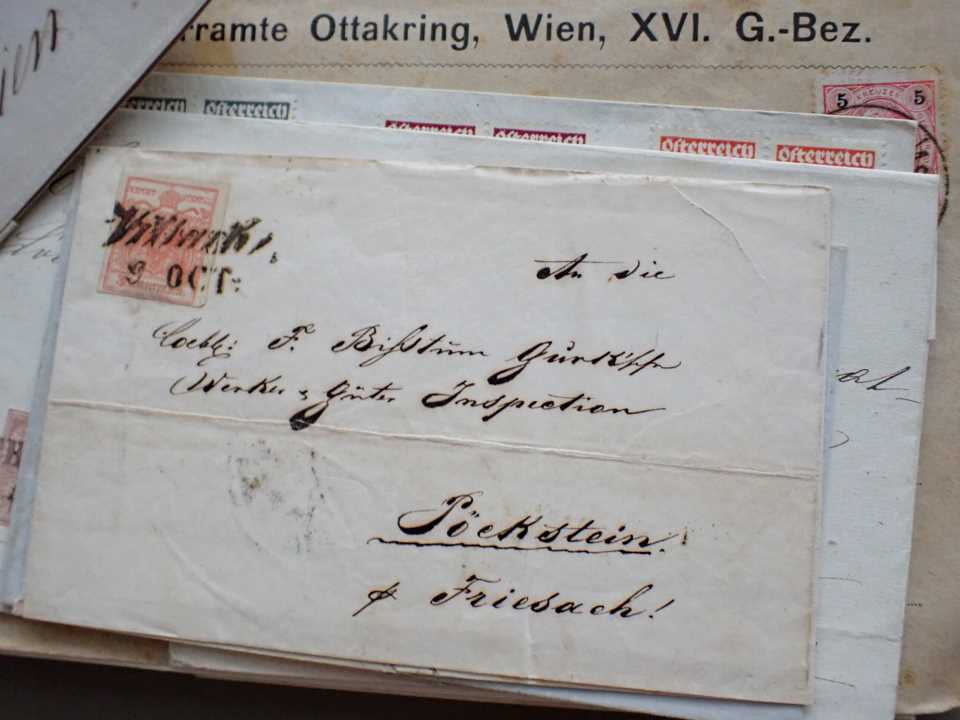 Ottakring, Wien, XVI. G.-Bez.
5 KREUZER 5
österreich
österreich
österreich
österreich
österreich
österreich
9 OCT:
An die
Löbl: F. Bißthum Gurk'sche
Werks & Güter Inspection
Pöckstein.
Friesach!